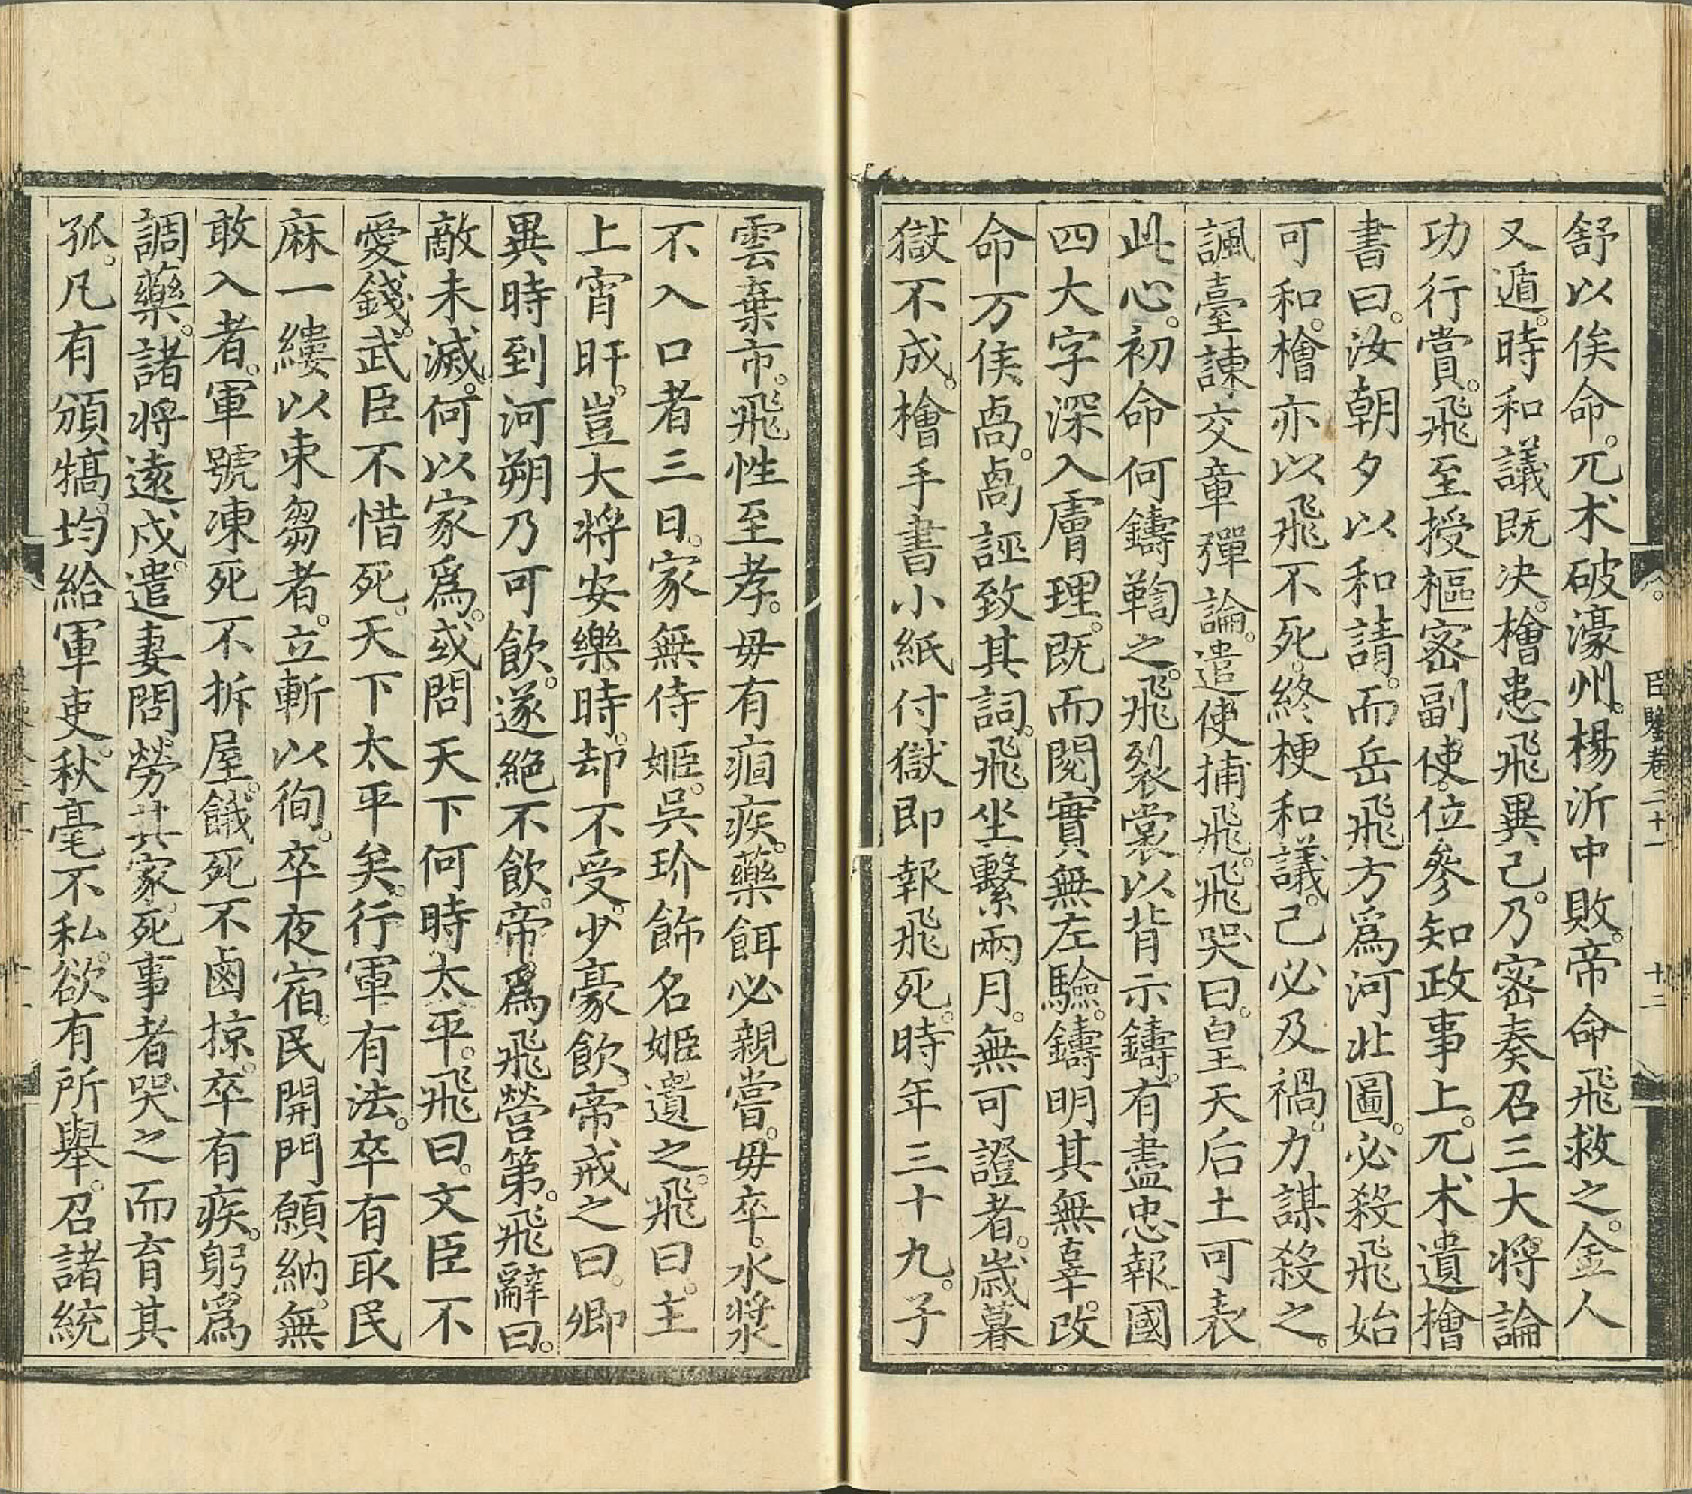 舒以俟命。兀术破濠州。楊沂中敗。帝命飛救之。金人
又遁。時和議既决。檜患飛異己。乃密奏召三大將論
功行賞。飛至授樞密副使。位參知政事上。兀术遺檜
書曰。汝朝夕以和請。而岳飛方爲河北圖。必殺飛始
可和。檜亦以飛不死。終梗和議。己必及禍。力謀殺之。
諷臺諫交章彈論。遣使捕飛。飛哭曰。皇天后土可表
此心。初命何鑄鞫之。飛裂裳以背示鑄。有盡忠報國
四大字深入膚理。既而閱實無左驗。鑄明其無辜。改
命万俟卨。卨誣致其詞。飛坐繫兩月。無可證者。歲暮
獄不成。檜手書小紙付獄即報飛死。時年三十九。子
臣鑒卷二十一 十二
雲棄市。飛性至孝。毋有痼疾。藥餌必親嘗。毋卒。水漿
不入口者三日。家無侍姬。吳玠飾名姬。遺之。飛曰。主
上宵旰。豈大將安樂時。却不受。少豪飲。帝戒之曰。卿
異時到河朔乃可飲。遂絕不飲。帝爲飛營第。飛辭曰。
敵未滅。何以家爲。或問天下何時太平。飛曰。文臣不
愛錢。武臣不惜死。天下太平矣。行軍有法。卒有取民
麻一縷以束芻者。立斬以徇。卒夜宿。民開門願納。無
敢入者。軍號凍死不拆屋。餓死不鹵掠。卒有疾。躬爲
調藥。諸將遠戍。遣妻問勞其家。死事者哭之而育其
孤。凡有頒犒。均給軍吏。秋毫不私。欲有所舉。召諸統